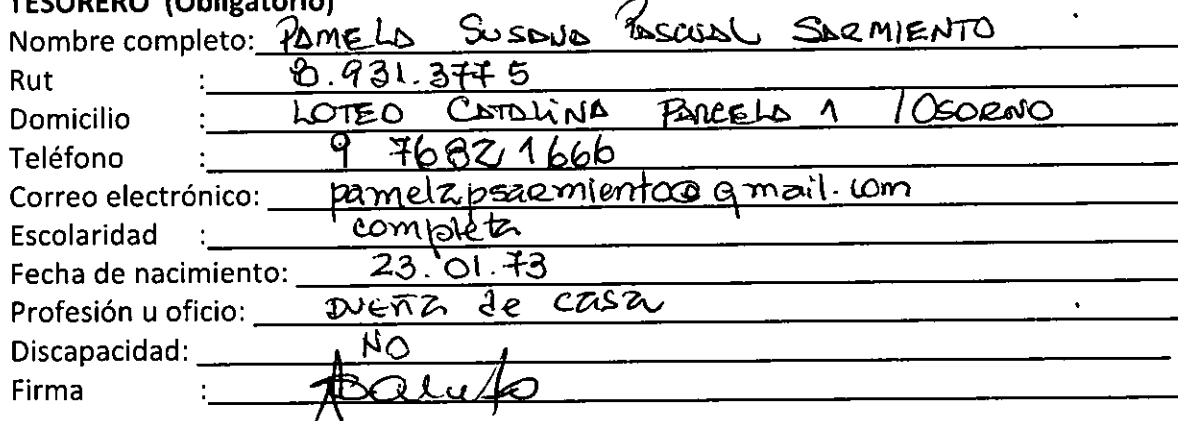 TESORERO (Obligatorio)
Nombre completo: PAMELA SUSANA PASCUAL SARMIENTO
Rut : 8.931.377 5
Domicilio : LOTEO CATALINA PARCELA 1 / OSORNO
Teléfono : 9 76821666
Correo electrónico: pamelapsarmiento@gmail.com
Escolaridad : completa
Fecha de nacimiento: 23.01.73
Profesión u oficio: DUEÑA de casa
Discapacidad: NO
Firma :